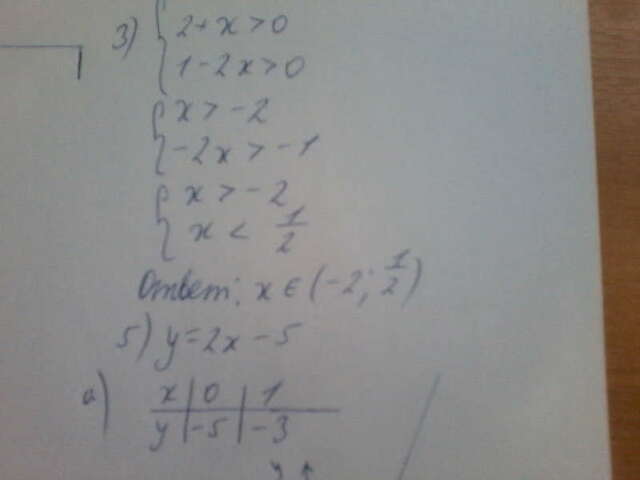 3) { 2+x>0
1-2x>0
{ x>-2
-2x>-1
{ x>-2
x< 1/2
Ответ: x ∈ (-2; 1/2)
5) y=2x-5
a) x | 0 | 1
y | -5 | -3
y